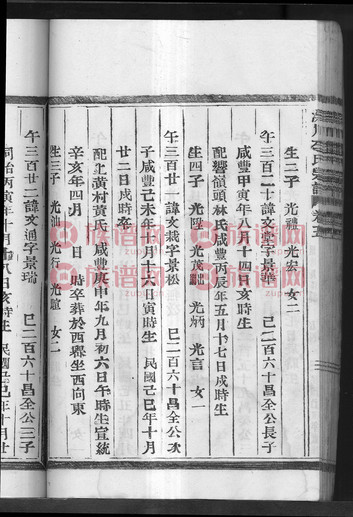 生二子 光 光宏 女二
午三百二十諱文 字景華 巳二百六十昌全公長子
咸豐甲寅年八月十四日亥時生
配響嶺頭林氏咸豐丙辰年五月十七日戌時生
生四子 光 光茂 光炳 光言 女一
午三百廿一諱文栽字景松 巳二百六十昌全公次
子咸豐己未年十月十六日寅時生 民國己巳年十月
廿二日戌時卒
配上黃村黃氏 咸豐庚申年九月初六日午時生宣統
辛亥年四月 日 時卒葬於西 坐西向東
生三子 光 光行 光 女二
午三百廿二諱文通字景瑞 巳二百六十昌全公三子
同治丙寅年十月 八日亥時生 民國 巳年十月廿